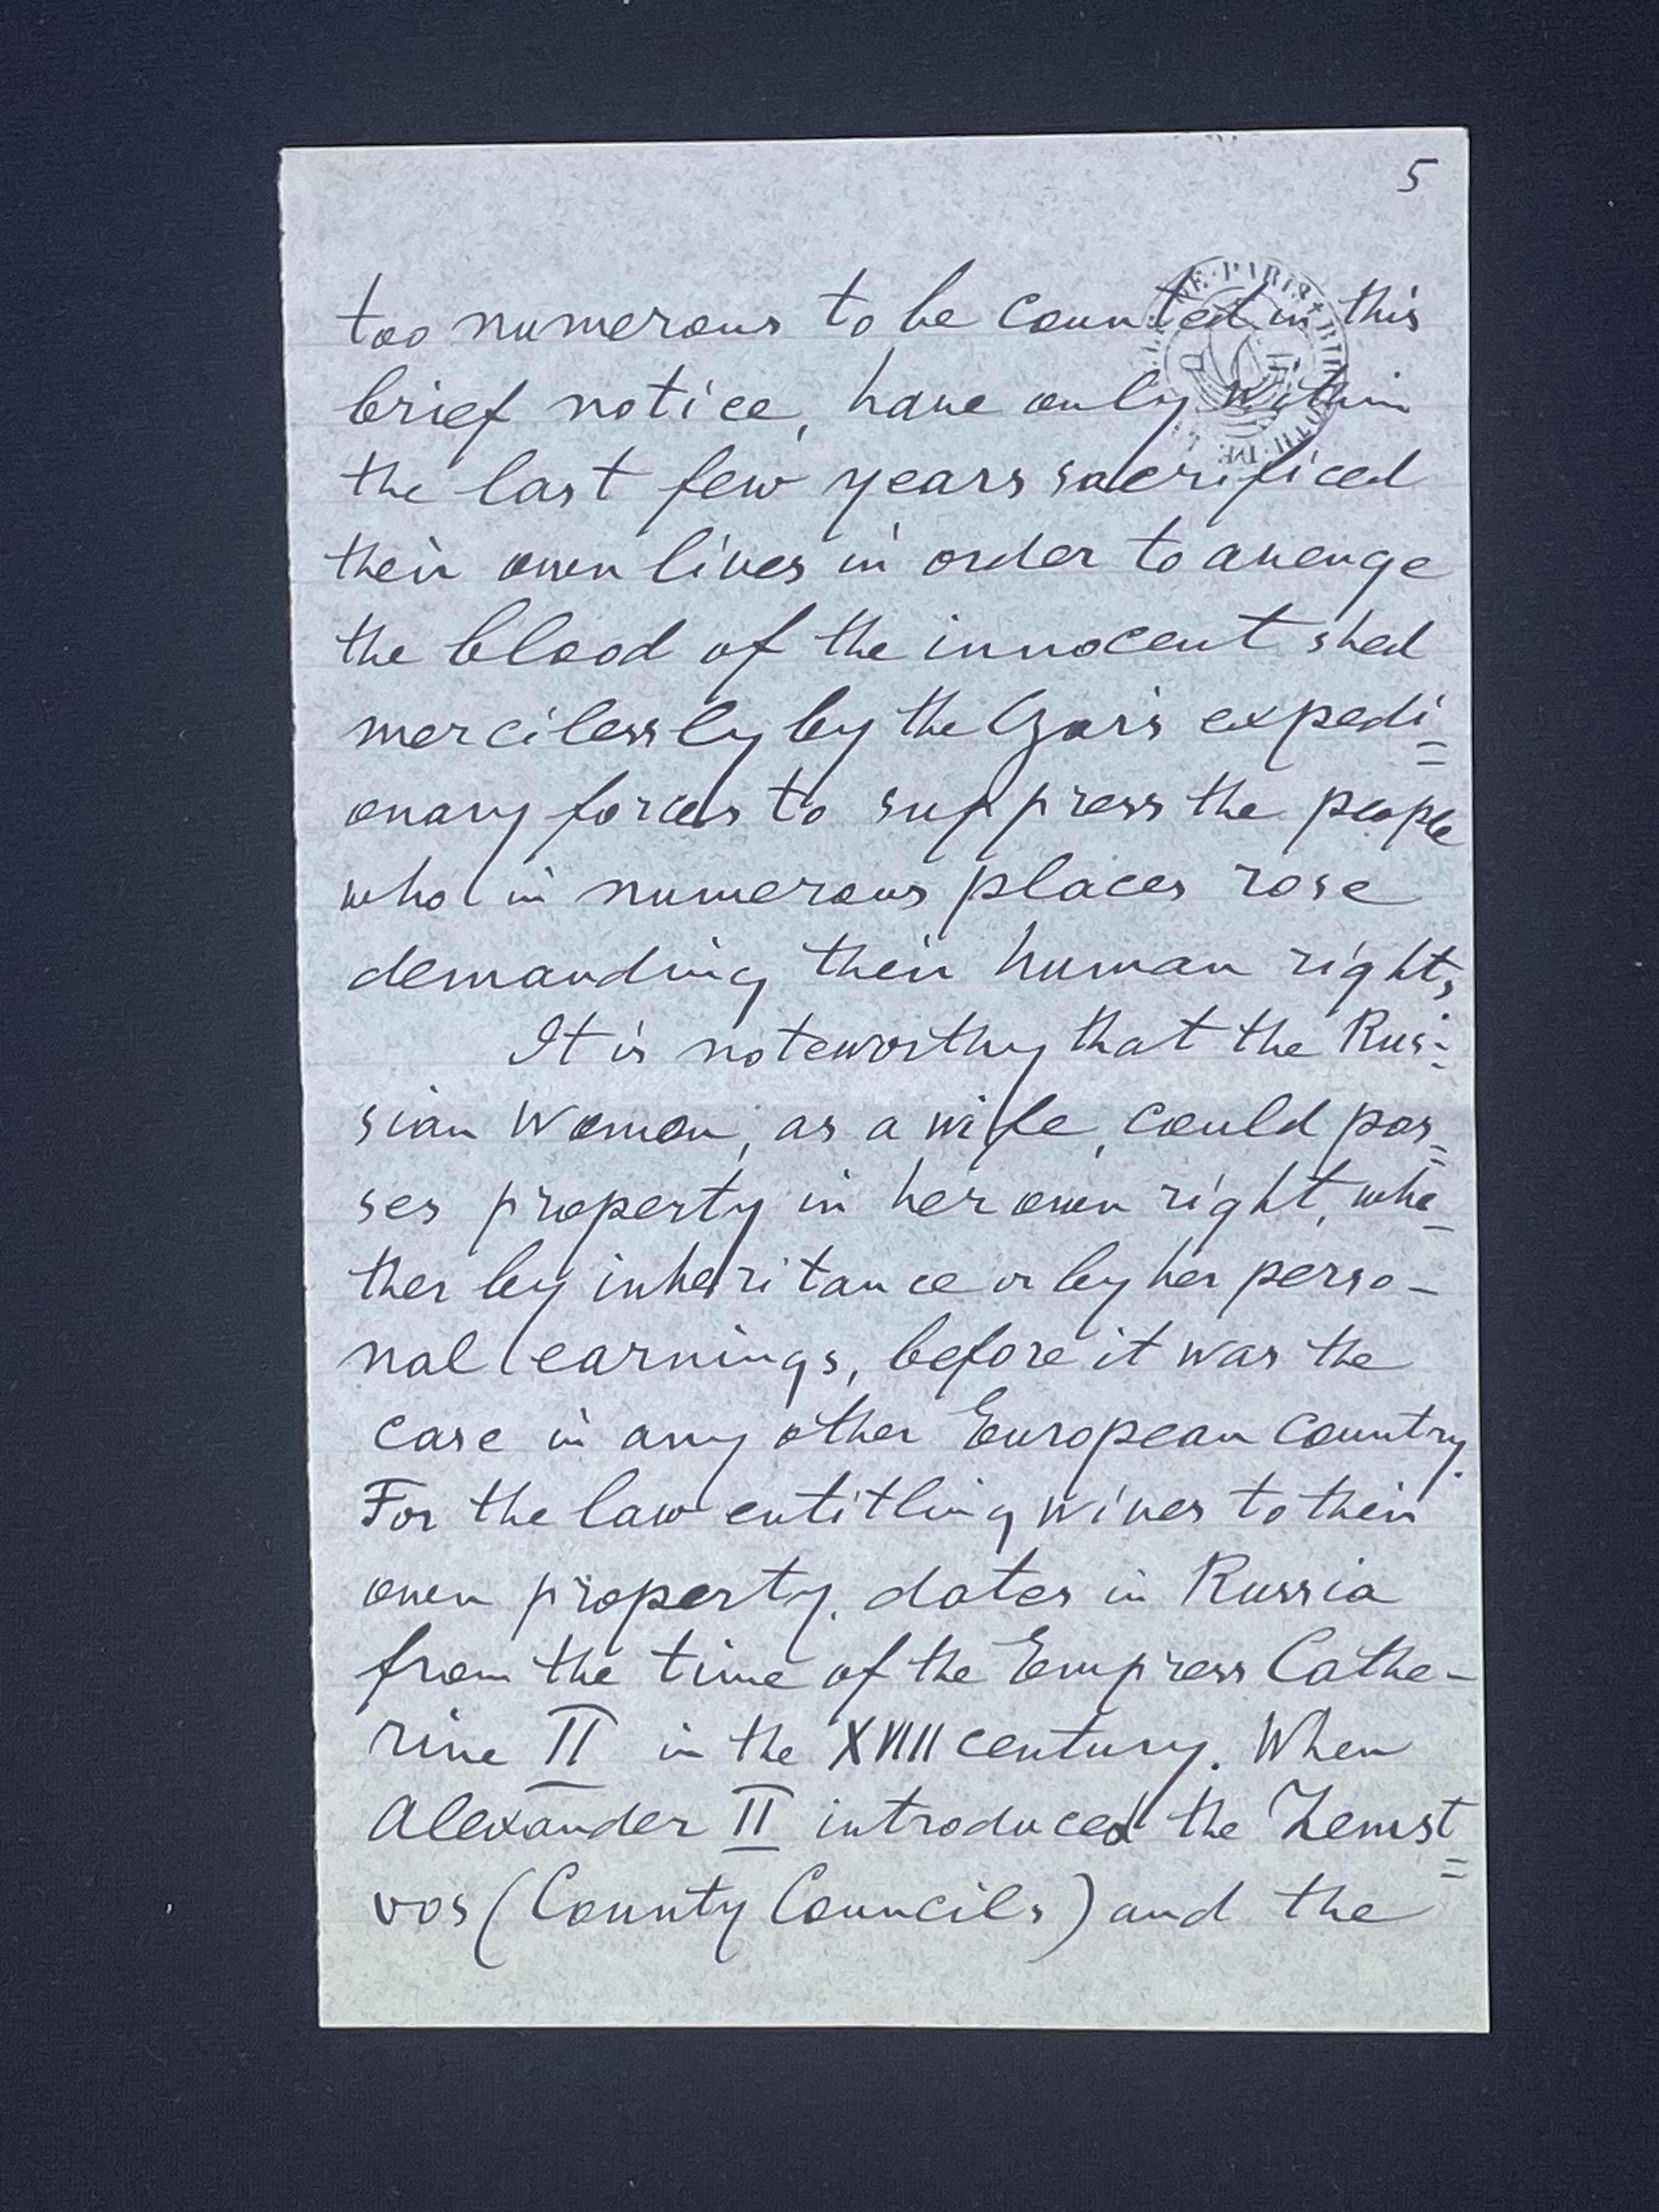 5
too numerous to be counted in this
brief notice, have only within
the last few years sacrificed
their own lives in order to avenge
the blood of the innocent shed
mercilessly by the Czar's expedi=
onary forces to suppress the people
who in numerous places rose
demanding their human rights,
It is noteworthy that the Rus=
sian woman, as a wife, could pos=
ses property in her own right, whe-
ther by inheritance or by her perso-
nal earnings, before it was the
case in any other European country.
For the law entitling wives to their
own property, dates in Russia
from the time of the Empress Cathe-
rine II in the XVIII century. When
Alexander II introduced the Zemst=
vos (County Councils) and the